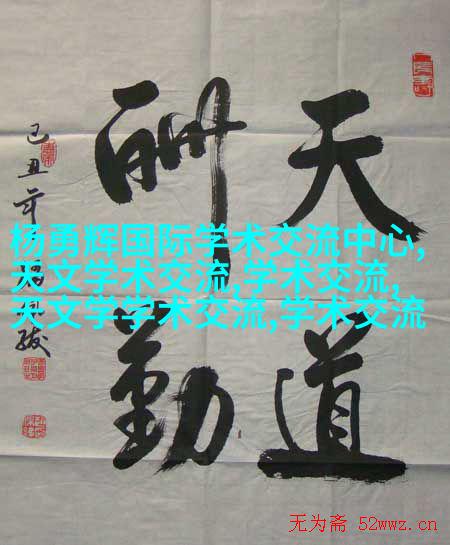 天道
酬勤
己丑年
杨勇辉国际学术交流中心,
天文学术交流,学术交流,
天文学学术交流,学术交流
无为斋 52wwz.cn